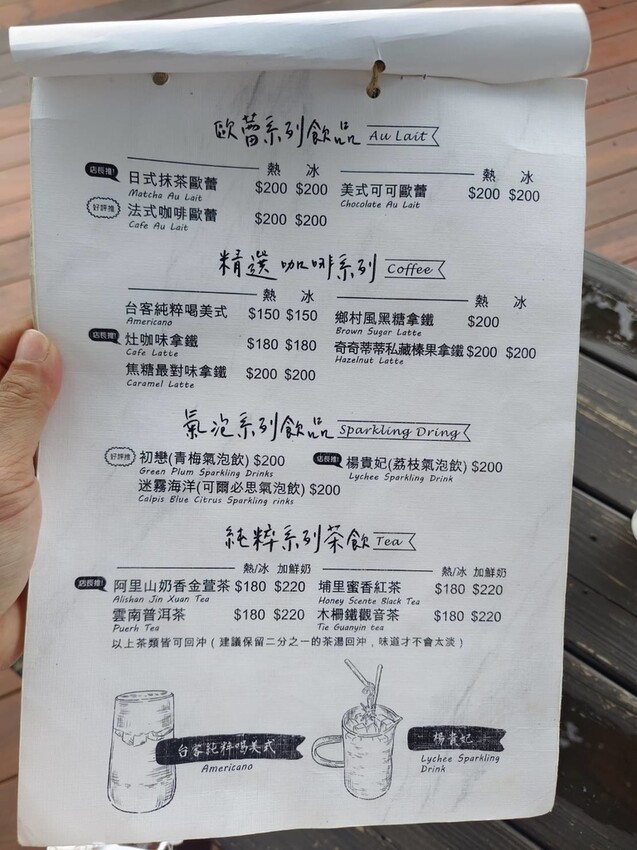 歐蕾系列飲品 Au Lait
熱 冰 熱 冰
店長推! 日式抹茶歐蕾 $200 $200 美式可可歐蕾 $200 $200
Matcha Au Lait Chocolate Au Lait
好評推 法式咖啡歐蕾 $200 $200
Cafe Au Lait
精選咖啡系列 Coffee
熱 冰 熱 冰
台客純粹喝美式 $150 $150 鄉村風黑糖拿鐵 $200
Americano Brown Sugar Latte
店長推! 灶咖味拿鐵 $180 $180 奇奇蒂蒂私藏榛果拿鐵 $200 $200
Cafe Latte Hazelnut Latte
焦糖最對味拿鐵 $200 $200
Caramel Latte
氣泡系列飲品 Sparkling Dring
好評推 初戀(青梅氣泡飲) $200 店長推! 楊貴妃(荔枝氣泡飲) $200
Green Plum Sparkling Drinks Lychee Sparkling Drink
迷霧海洋(可爾必思氣泡飲) $200
Calpis Blue Citrus Sparkling rinks
純粹系列茶飲 Tea
熱/冰 加鮮奶 熱/冰 加鮮奶
店長推! 阿里山奶香金萱茶 $180 $220 埔里蜜香紅茶 $180 $220
Alishan Jin Xuan Tea Honey Scente Black Tea
雲南普洱茶 $180 $220 木柵鐵觀音茶 $180 $220
Puerh Tea Tie Guanyin tea
以上茶類皆可回沖(建議保留二分之一的茶湯回沖,味道才不會太淡)
台客純粹喝美式
Americano
楊貴妃
Lychee Sparkling
Drink